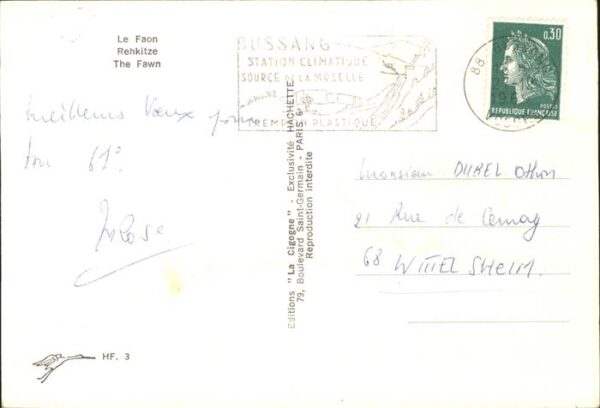 Le Faon
Rehkitze
The Fawn
BUSSANG
STATION CLIMATIQUE
SOURCE DE LA MOSELLE
TREMPLIN PLASTIQUE
88
0,30
POSTES
REPUBLIQUE-FRANÇAISE
Meilleurs Vœux pour
ton 61e
Editions "La Cigogne" - Exclusivité HACHETTE
79, Boulevard Saint-Germain - PARIS 6e
Reproduction interdite
Monsieur DUREL Othon
21 Rue de Cernay
68 WITTELSHEIM.
HF. 3